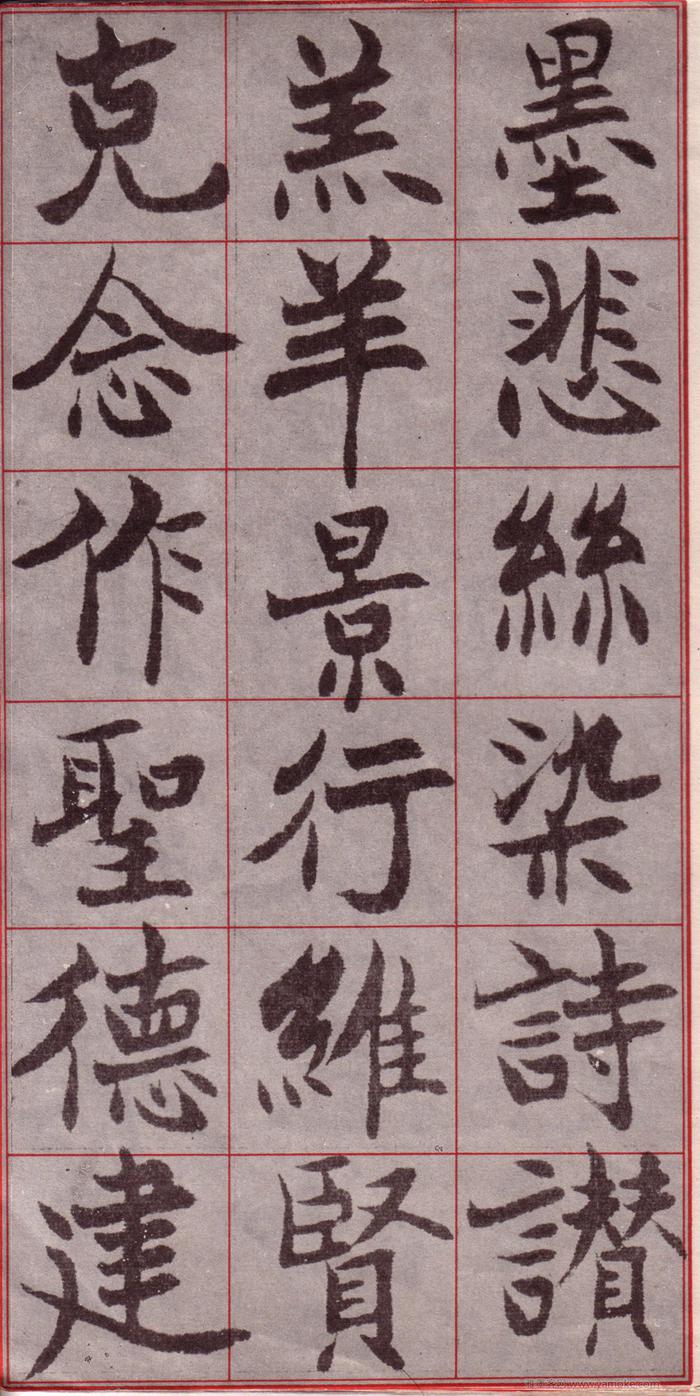 墨悲絲染詩讃
羔羊景行維賢
克念作聖德建